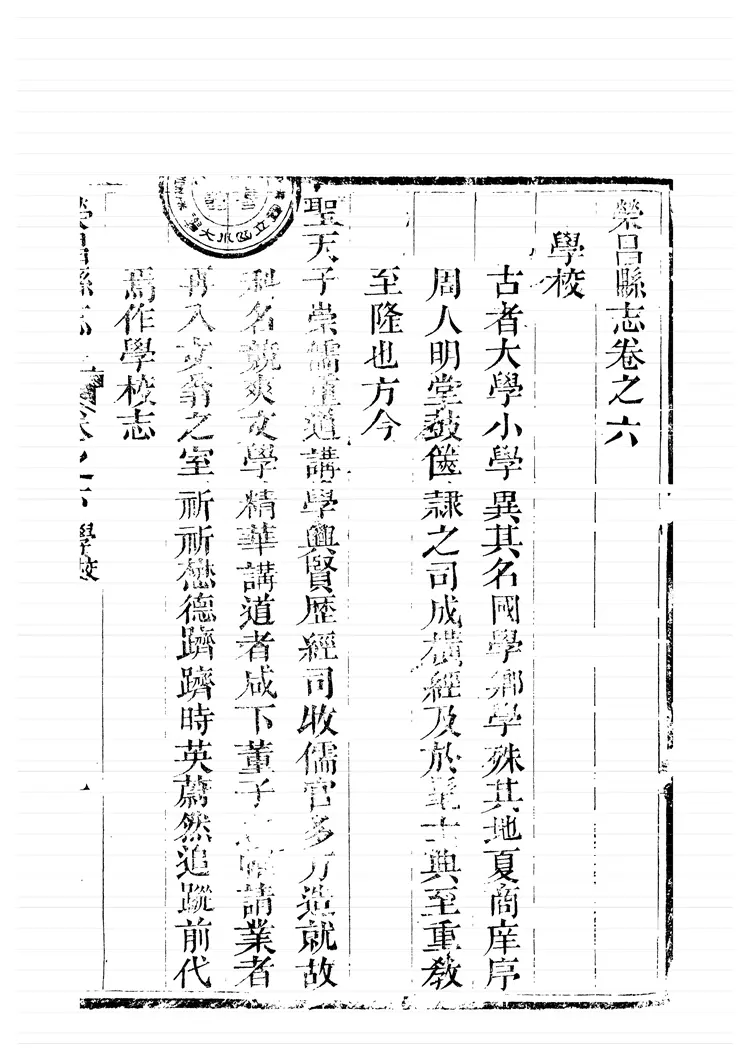 榮昌縣志卷之六
學校
古者大學小學異其名國學鄉學殊其地夏商庠序
周人明堂鼓篋隷之司成橫經及於髦士典至重教
至隆也方今
聖天子崇儒重道講學興賢歷經司牧儒官多方造就故
科名競爽文學精華講道者咸下董子之帷請業者
再入文翁之室祈祈懋德蹌蹌時英蔚然追蹤前代
焉作學校志
榮昌縣志 卷之六 學校